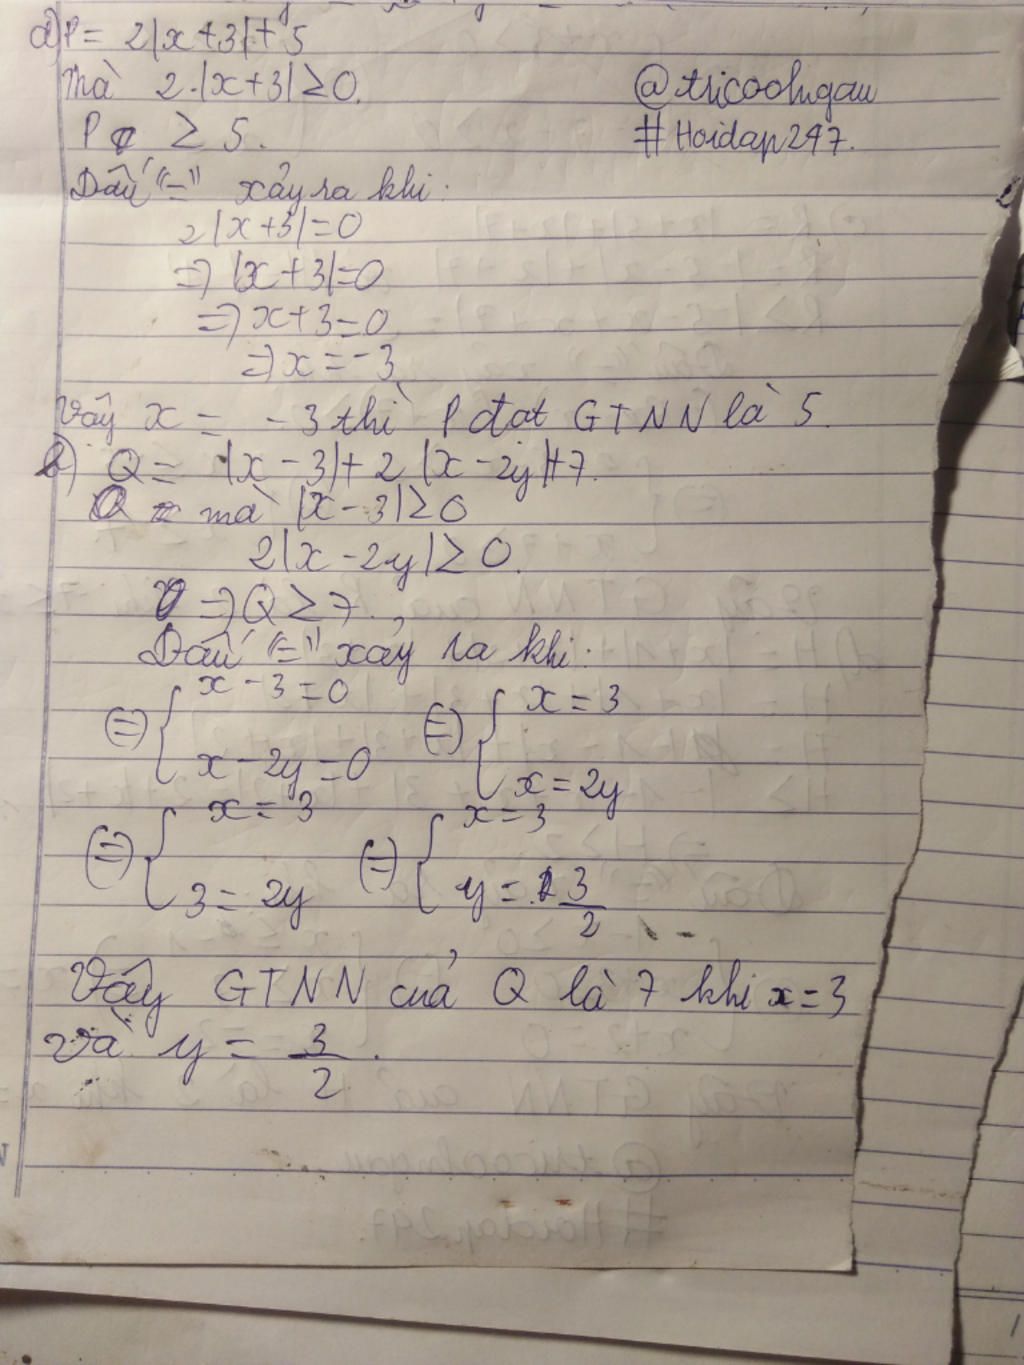 a) P = 2|x+3|+5
mà 2.|x+3| ≥ 0.
@tricoohgau
P ≥ 5.
#Hoidap247.
Dấu "=" xảy ra khi:
2|x+3|=0
=> |x+3|=0
=> x+3=0
=> x=-3
Vậy x = -3 thì P đạt GTNN là 5.
b) Q = |x-3|+2|x-2y|+7.
mà |x-3| ≥ 0
2|x-2y| ≥ 0.
=> Q ≥ 7.
Dấu "=" xảy ra khi:
(=) { x-3=0 (=) { x=3
x-2y=0 x=2y
(=) { x=3 (=) { x=3
3=2y y=3/2
Vậy GTNN của Q là 7 khi x=3
và y = 3/2.